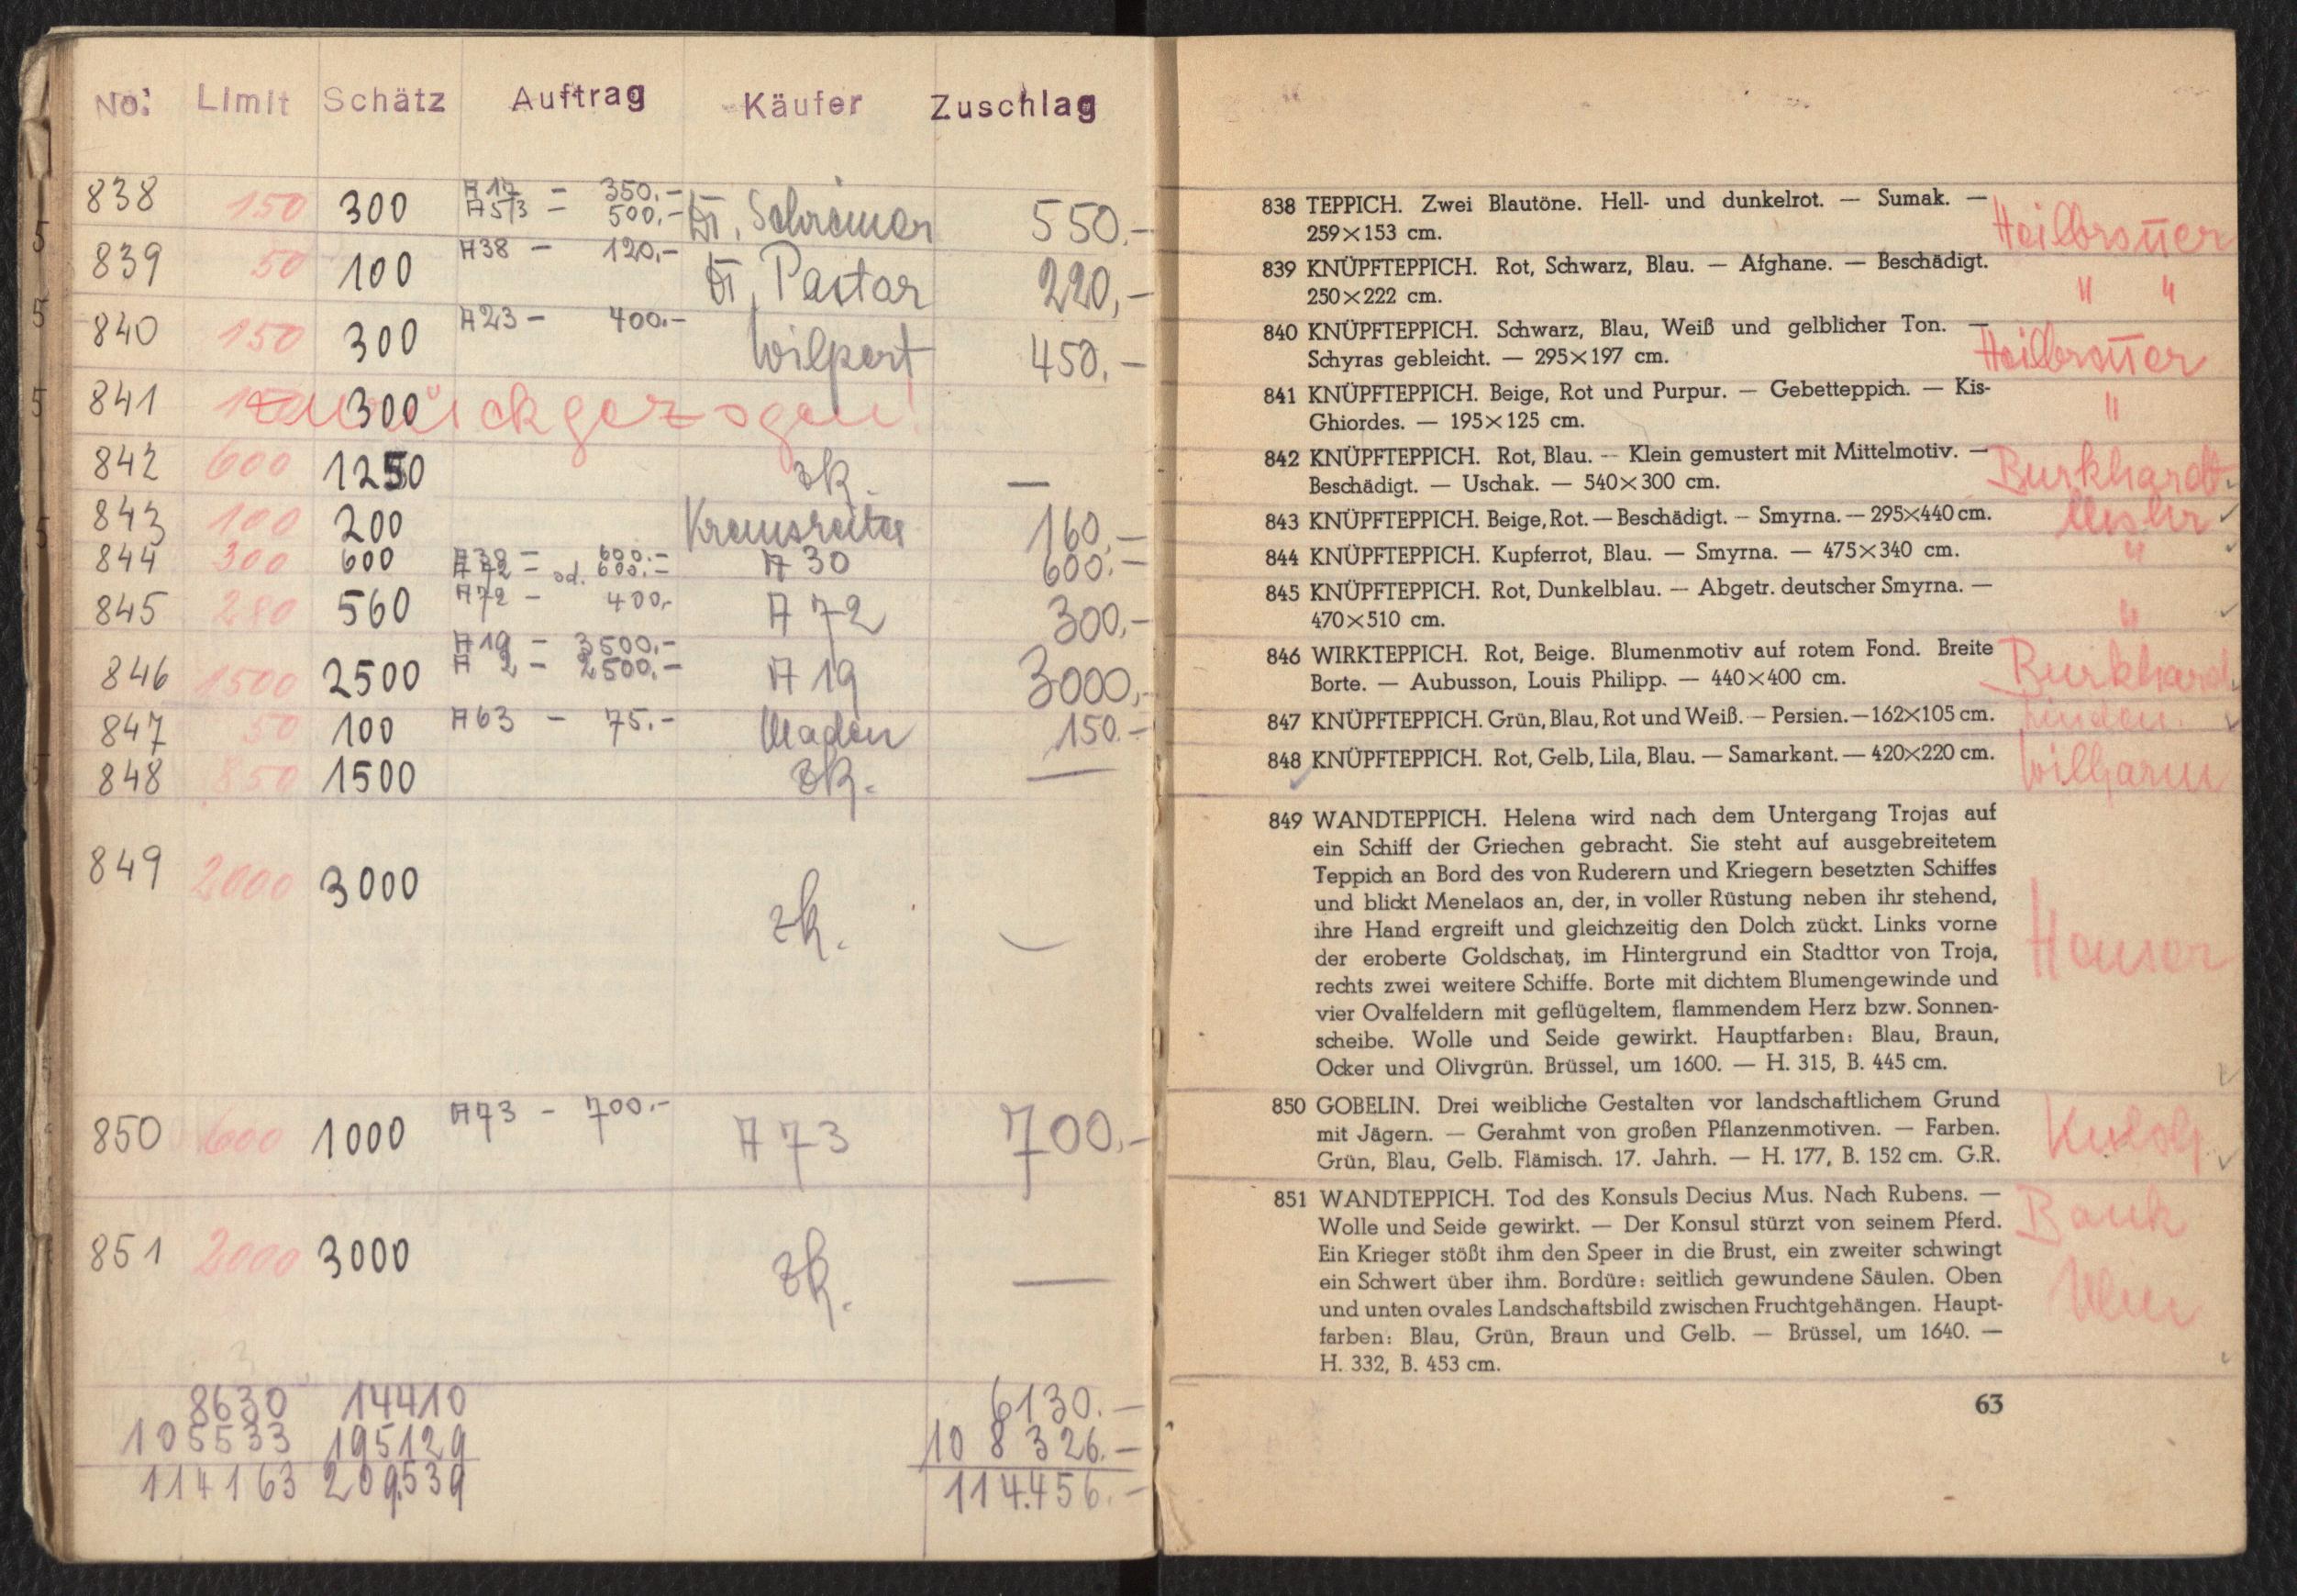 No: Limit Schätz Auftrag Käufer Zuschlag
838 150 300 A17 - 350.- Dr. Schreiner 550.-
A53 - 500.-
839 50 100 A38 - 120.- Dr. Pastor 220,-
840 150 300 A23 - 400.- Wilpert 450.-
841 300 zurückgezogen!
842 600 1250 zk. —
843 100 200 Kremsreiter 160.-
844 300 600 600.- A30 600.-
A72 - od. 600.-
845 280 560 A72 - 400,- A72 300,-
846 1500 2500 A19 - 3500.- A19 3000,-
A 2 - 2500.-
847 50 100 A63 - 75.- 150.-
848 850 1500 zk. —
849 2000 3000 zk. —
850 600 1000 A73 - 700.- A73 700.-
851 2000 3000 zk. —
8630 14410 6130.-
105533 195129 108326.-
114163 209539 114.456.-
838 TEPPICH. Zwei Blautöne. Hell- und dunkelrot. — Sumak. —
259×153 cm.
Heilbronner
839 KNÜPFTEPPICH. Rot, Schwarz, Blau. — Afghane. — Beschädigt.
250×222 cm.
" "
840 KNÜPFTEPPICH. Schwarz, Blau, Weiß und gelblicher Ton. —
Schyras gebleicht. — 295×197 cm.
Heilbronner
841 KNÜPFTEPPICH. Beige, Rot und Purpur. — Gebetteppich. — Kis-
Ghiordes. — 195×125 cm.
"
842 KNÜPFTEPPICH. Rot, Blau. — Klein gemustert mit Mittelmotiv. —
Beschädigt. — Uschak. — 540×300 cm.
Burkhardt
843 KNÜPFTEPPICH. Beige, Rot. — Beschädigt. — Smyrna. — 295×440 cm.
844 KNÜPFTEPPICH. Kupferrot, Blau. — Smyrna. — 475×340 cm.
"
845 KNÜPFTEPPICH. Rot, Dunkelblau. — Abgetr. deutscher Smyrna. —
470×510 cm.
"
846 WIRKTEPPICH. Rot, Beige. Blumenmotiv auf rotem Fond. Breite
Borte. — Aubusson, Louis Philipp. — 440×400 cm.
Burkhard
847 KNÜPFTEPPICH. Grün, Blau, Rot und Weiß. — Persien. — 162×105 cm.
848 KNÜPFTEPPICH. Rot, Gelb, Lila, Blau. — Samarkant. — 420×220 cm.
Wilharm
849 WANDTEPPICH. Helena wird nach dem Untergang Trojas auf
ein Schiff der Griechen gebracht. Sie steht auf ausgebreitetem
Teppich an Bord des von Ruderern und Kriegern besetzten Schiffes
und blickt Menelaos an, der, in voller Rüstung neben ihr stehend,
ihre Hand ergreift und gleichzeitig den Dolch zückt. Links vorne
der eroberte Goldschatz, im Hintergrund ein Stadttor von Troja,
rechts zwei weitere Schiffe. Borte mit dichtem Blumengewinde und
vier Ovalfeldern mit geflügeltem, flammendem Herz bzw. Sonnen-
scheibe. Wolle und Seide gewirkt. Hauptfarben: Blau, Braun,
Ocker und Olivgrün. Brüssel, um 1600. — H. 315, B. 445 cm.
Hauser
850 GOBELIN. Drei weibliche Gestalten vor landschaftlichem Grund
mit Jägern. — Gerahmt von großen Pflanzenmotiven. — Farben.
Grün, Blau, Gelb. Flämisch. 17. Jahrh. — H. 177, B. 152 cm. G.R.
851 WANDTEPPICH. Tod des Konsuls Decius Mus. Nach Rubens. —
Wolle und Seide gewirkt. — Der Konsul stürzt von seinem Pferd.
Ein Krieger stößt ihm den Speer in die Brust, ein zweiter schwingt
ein Schwert über ihm. Bordüre: seitlich gewundene Säulen. Oben
und unten ovales Landschaftsbild zwischen Fruchtgehängen. Haupt-
farben: Blau, Grün, Braun und Gelb. — Brüssel, um 1640. —
H. 332, B. 453 cm.
Bank
Ulm
63